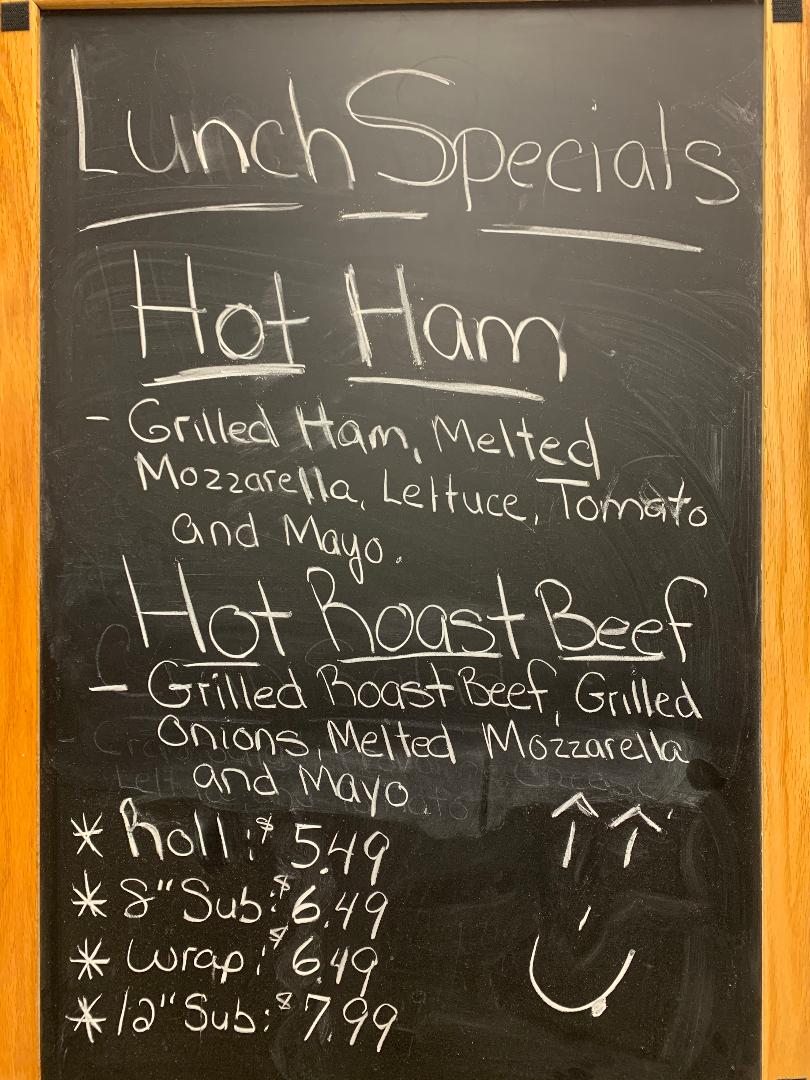 Lunch Specials
Hot Ham
- Grilled Ham, Melted
Mozzarella, Lettuce, Tomato
and Mayo.
Hot Roast Beef
- Grilled Roast Beef, Grilled
Onions, Melted Mozzarella
and Mayo
* Roll: $5.49
* 8" Sub: $6.49
* Wrap: $6.49
* 12" Sub: $7.99